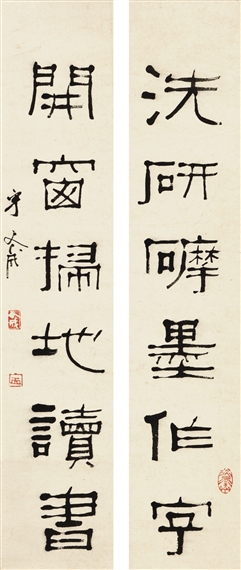 洗研磨墨作字
開窗掃地讀書
寧斧成